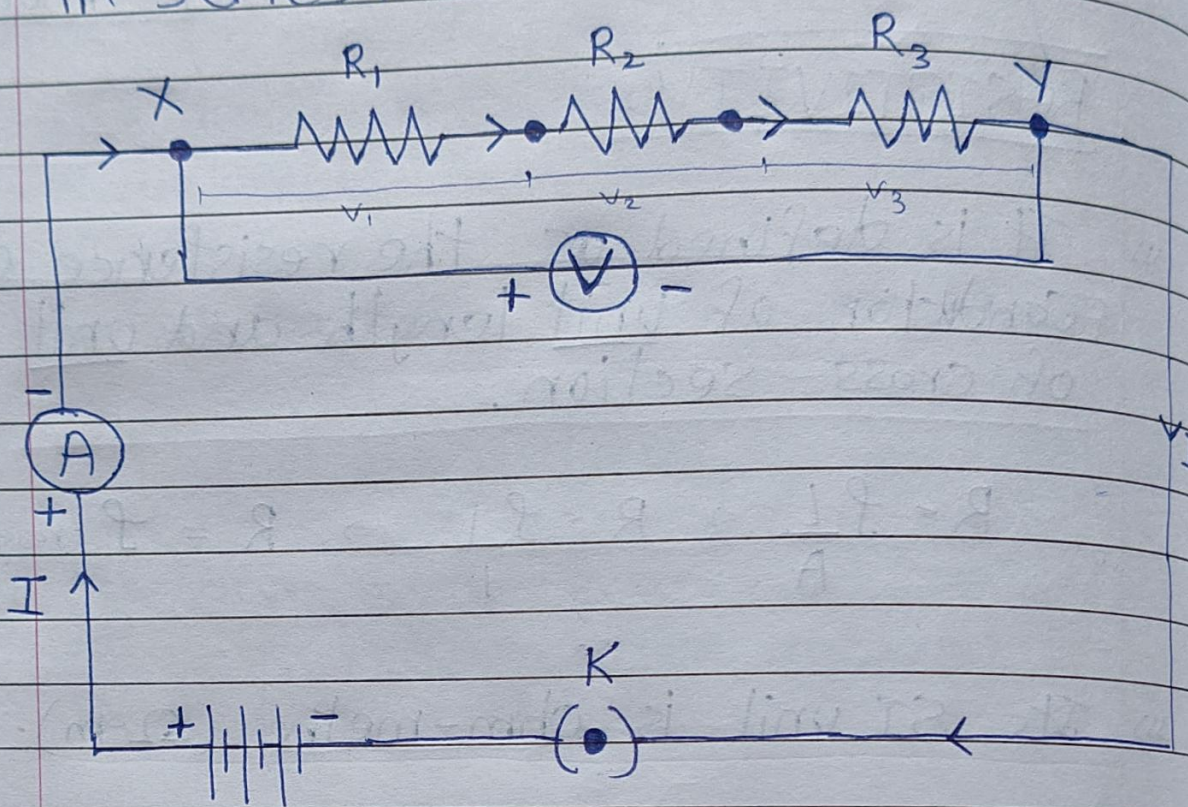 R₁ R₂ R₃
X Y
V₁ V₂ V₃
+ V -
-
A
+
I
K
+ -